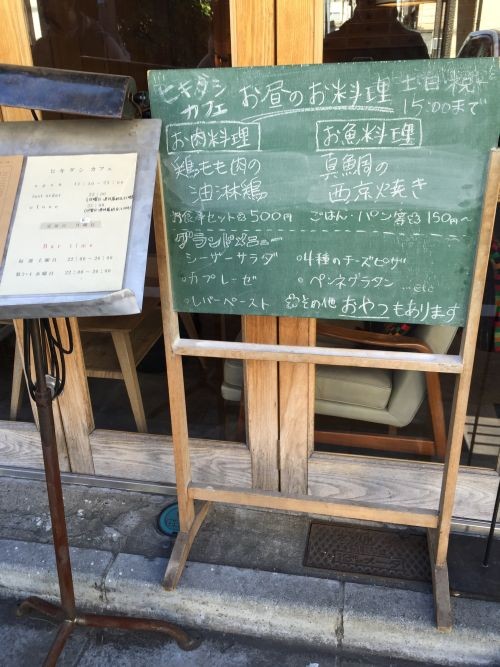 ヒキダシ カフェ
open 11:30~23:00
last order 22:30
close 23:00
定休日 月曜日
Bar time
毎週土曜日 22:00~26:00
第2・4水曜日 22:00~26:00
ヒキダシ
カフェ
お昼のお料理
土日祝
15:00まで
お肉料理
お魚料理
鶏もも肉の
油淋鶏
真鯛の
西京焼き
お食事セット各500円
ごはん・パン 各150円~
グランドメニュー
シーザーサラダ
○4種のチーズピザ
カプレーゼ
○ペンネグラタン
...etc
レバーペースト
その他 おやつもあります